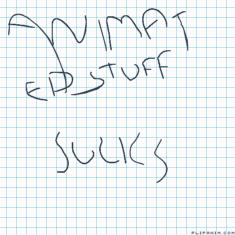 ANIMAT
ED STUFF
SUCKS
FLIPANIM.COM